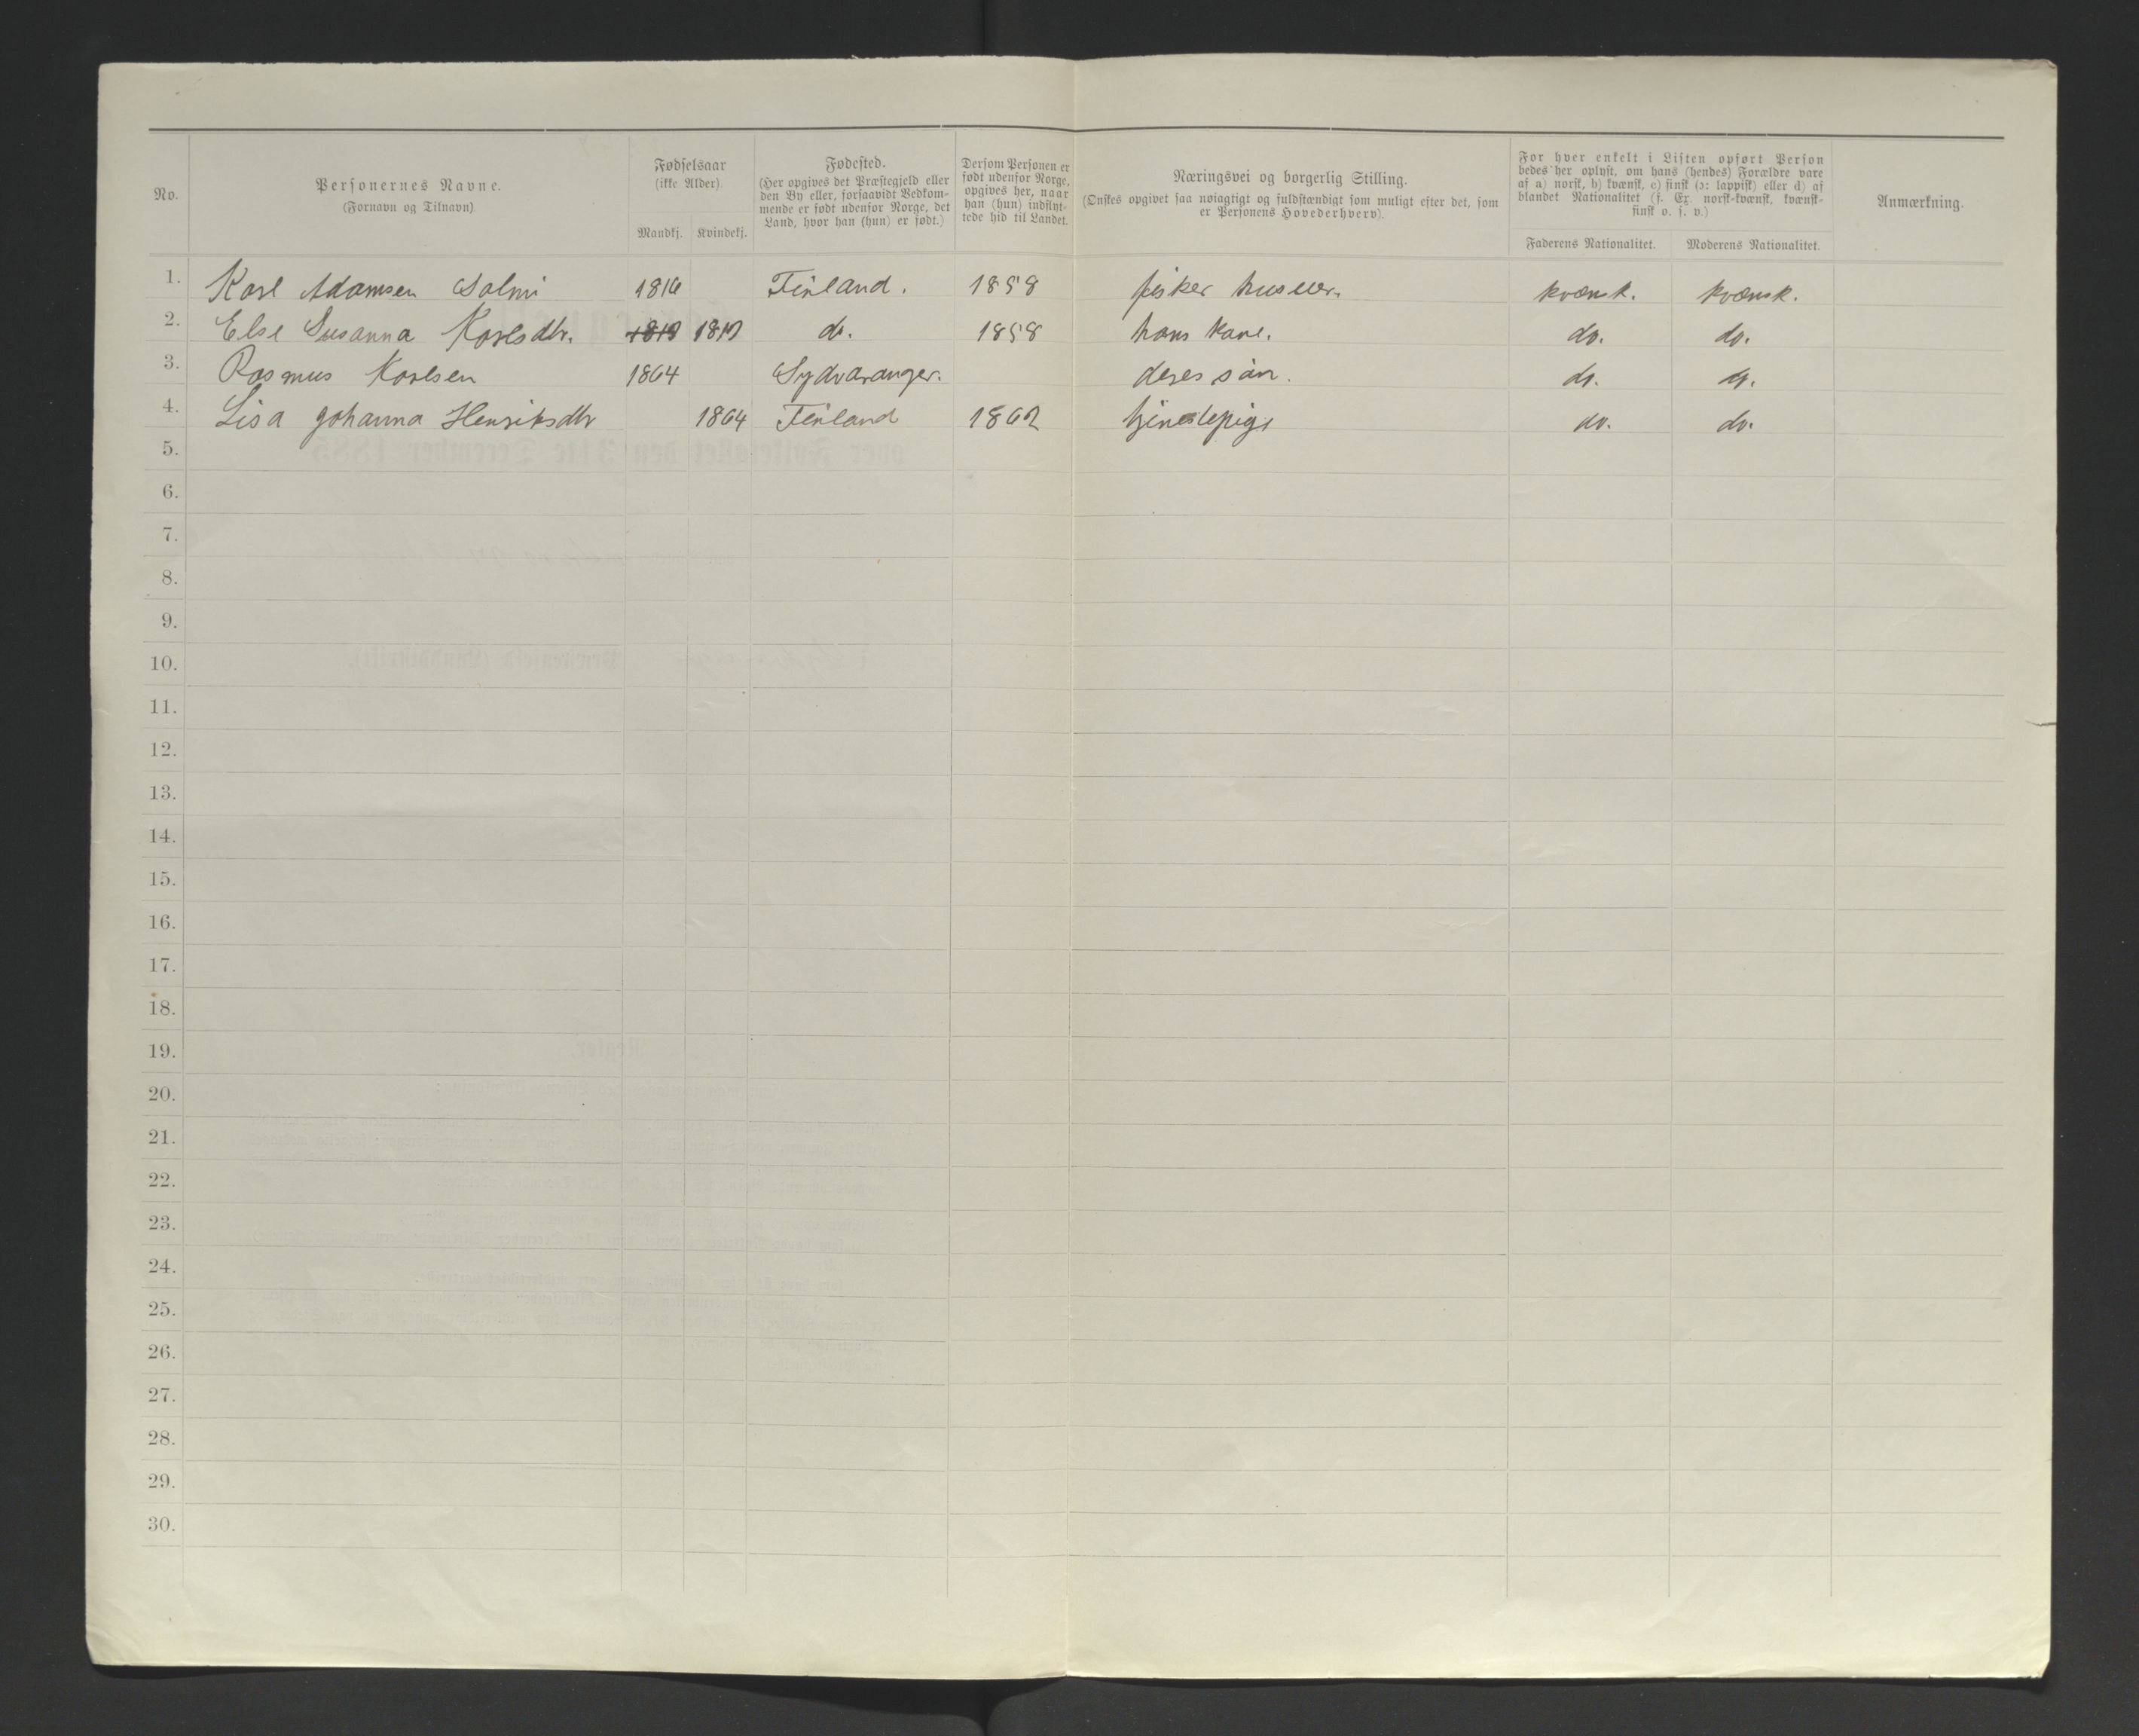 No.
Personernes Navne.
(Fornavn og Tilnavn)
Fødselsaar
(ikke Alder).
Mandkj.
Kvindekj.
Fødested.
(Her opgives det Præstegjeld eller
den By eller, forsaavidt Vedkom-
mende er født udenfor Norge, det
Land, hvor han (hun) er født.)
Dersom Personen er
født udenfor Norge,
opgives her, naar
han (hun) indflyt-
tede hid til Landet.
Næringsvei og borgerlig Stilling.
(Ønskes opgivet saa nøiagtigt og fuldstændigt som muligt efter det, som
er Personens Hovederhverv).
For hver enkelt i Listen opført Person
bedes her oplyst, om hans (hendes) Forældre vare
af a) norsk, b) kvænsk, c) finsk (ɔ: lappisk) eller d) af
blandet Nationalitet (f. Ex. norsk-kvænsk, kvænsk-
finsk o. s. v.)
Faderens Nationalitet.
Moderens Nationalitet.
Anmærkning.
1. Karl Adamsen Salmi 1816 Finland. 1858 fisker huseier. kvænsk. kvænsk.
2. Else Susanna Karlsdtr. do. 1858 hans kone. do. do.
3. Rasmus Karlsen 1864 Sydvaranger. deres sön. do. do.
4. Lisa Johanna Henriksdtr 1864 Finland tjenestepige do. do.
5.
6.
7.
8.
9.
10.
11.
12.
13.
14.
15.
16.
17.
18.
19.
20.
21.
22.
23.
24.
25.
26.
27.
28.
29.
30.